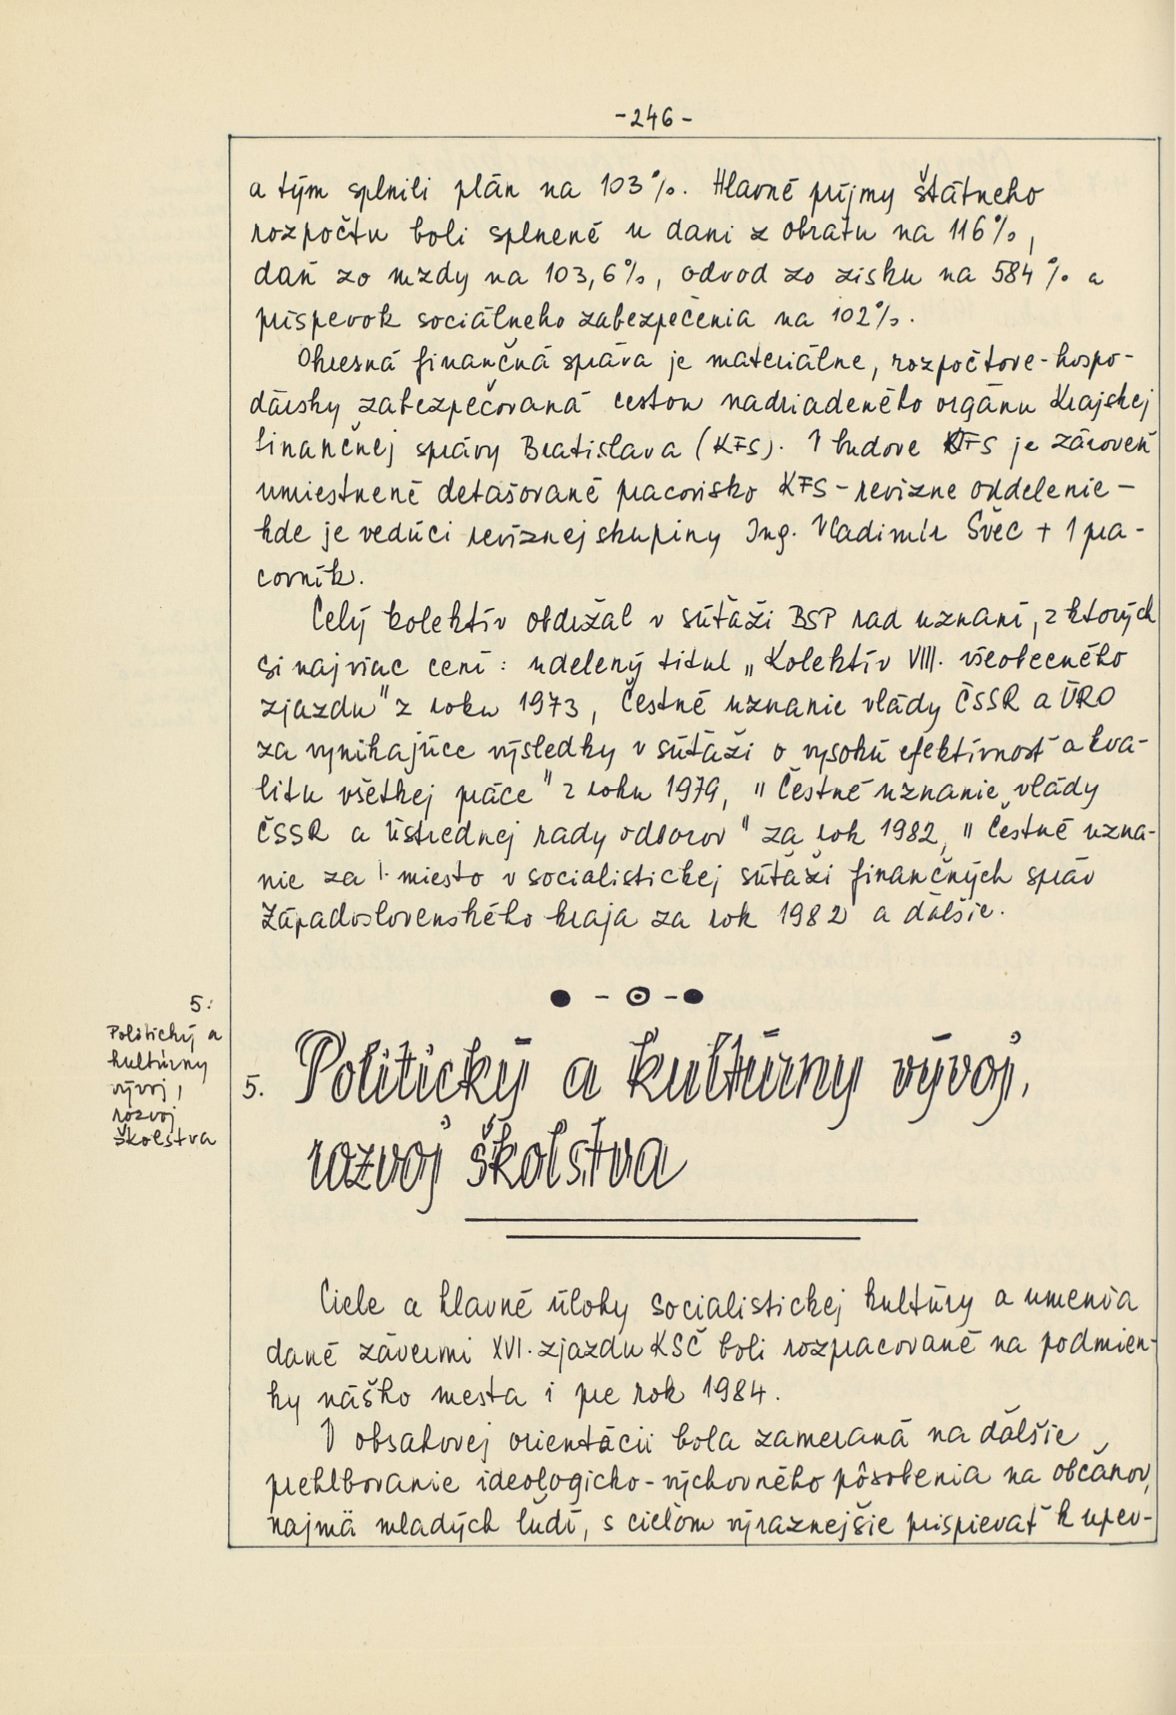 -246-
a tým splnili plán na 103%. Hlavné príjmy štátneho
rozpočtu boli splnené u dani z obratu na 116%,
daň zo mzdy na 103,6%, odvod zo zisku na 584% a
príspevok sociálneho zabezpečenia na 102%.
Okresná finančná správa je materiálne, rozpočtove-hospo-
dársky zabezpečovaná cestou nadriadeného orgánu Krajskej
finančnej správy Bratislava (KFS). V budove OFS je zároveň
umiestnené detašované pracovisko KFS - revízne oddelenie -
kde je vedúci revíznej skupiny Ing. Vladimír Švec + 1 pra-
covník.
Celý kolektív obdržal v súťaži BSP rad uznaní, z ktorých
si najviac cení: udelený titul „Kolektív VIII. všeobecného
zjazdu" z roku 1973, Čestné uznanie vlády ČSSR a ÚRO
za vynikajúce výsledky v súťaži o vysokú efektívnosť a kva-
litu všetkej práce" z roku 1979, "Čestné uznanie vlády
ČSSR a Ústrednej rady odborov" za rok 1982, "Čestné uzna-
nie za 1. miesto v socialistickej súťaži finančných správ
Západoslovenského kraja za rok 1982 a ďalšie.
5.
Politický a
kultúrny
vývoj,
rozvoj
školstva
5. Politický a kultúrny vývoj,
rozvoj školstva
Ciele a hlavné úlohy socialistickej kultúry a umenia
dané závermi XVI. zjazdu KSČ boli rozpracované na podmien-
ky nášho mesta i pre rok 1984.
V obsahovej orientácii bola zameraná na ďalšie
prehlbovanie ideologicko-výchovného pôsobenia na občanov,
najmä mladých ľudí, s cieľom výraznejšie prispievať k upev-